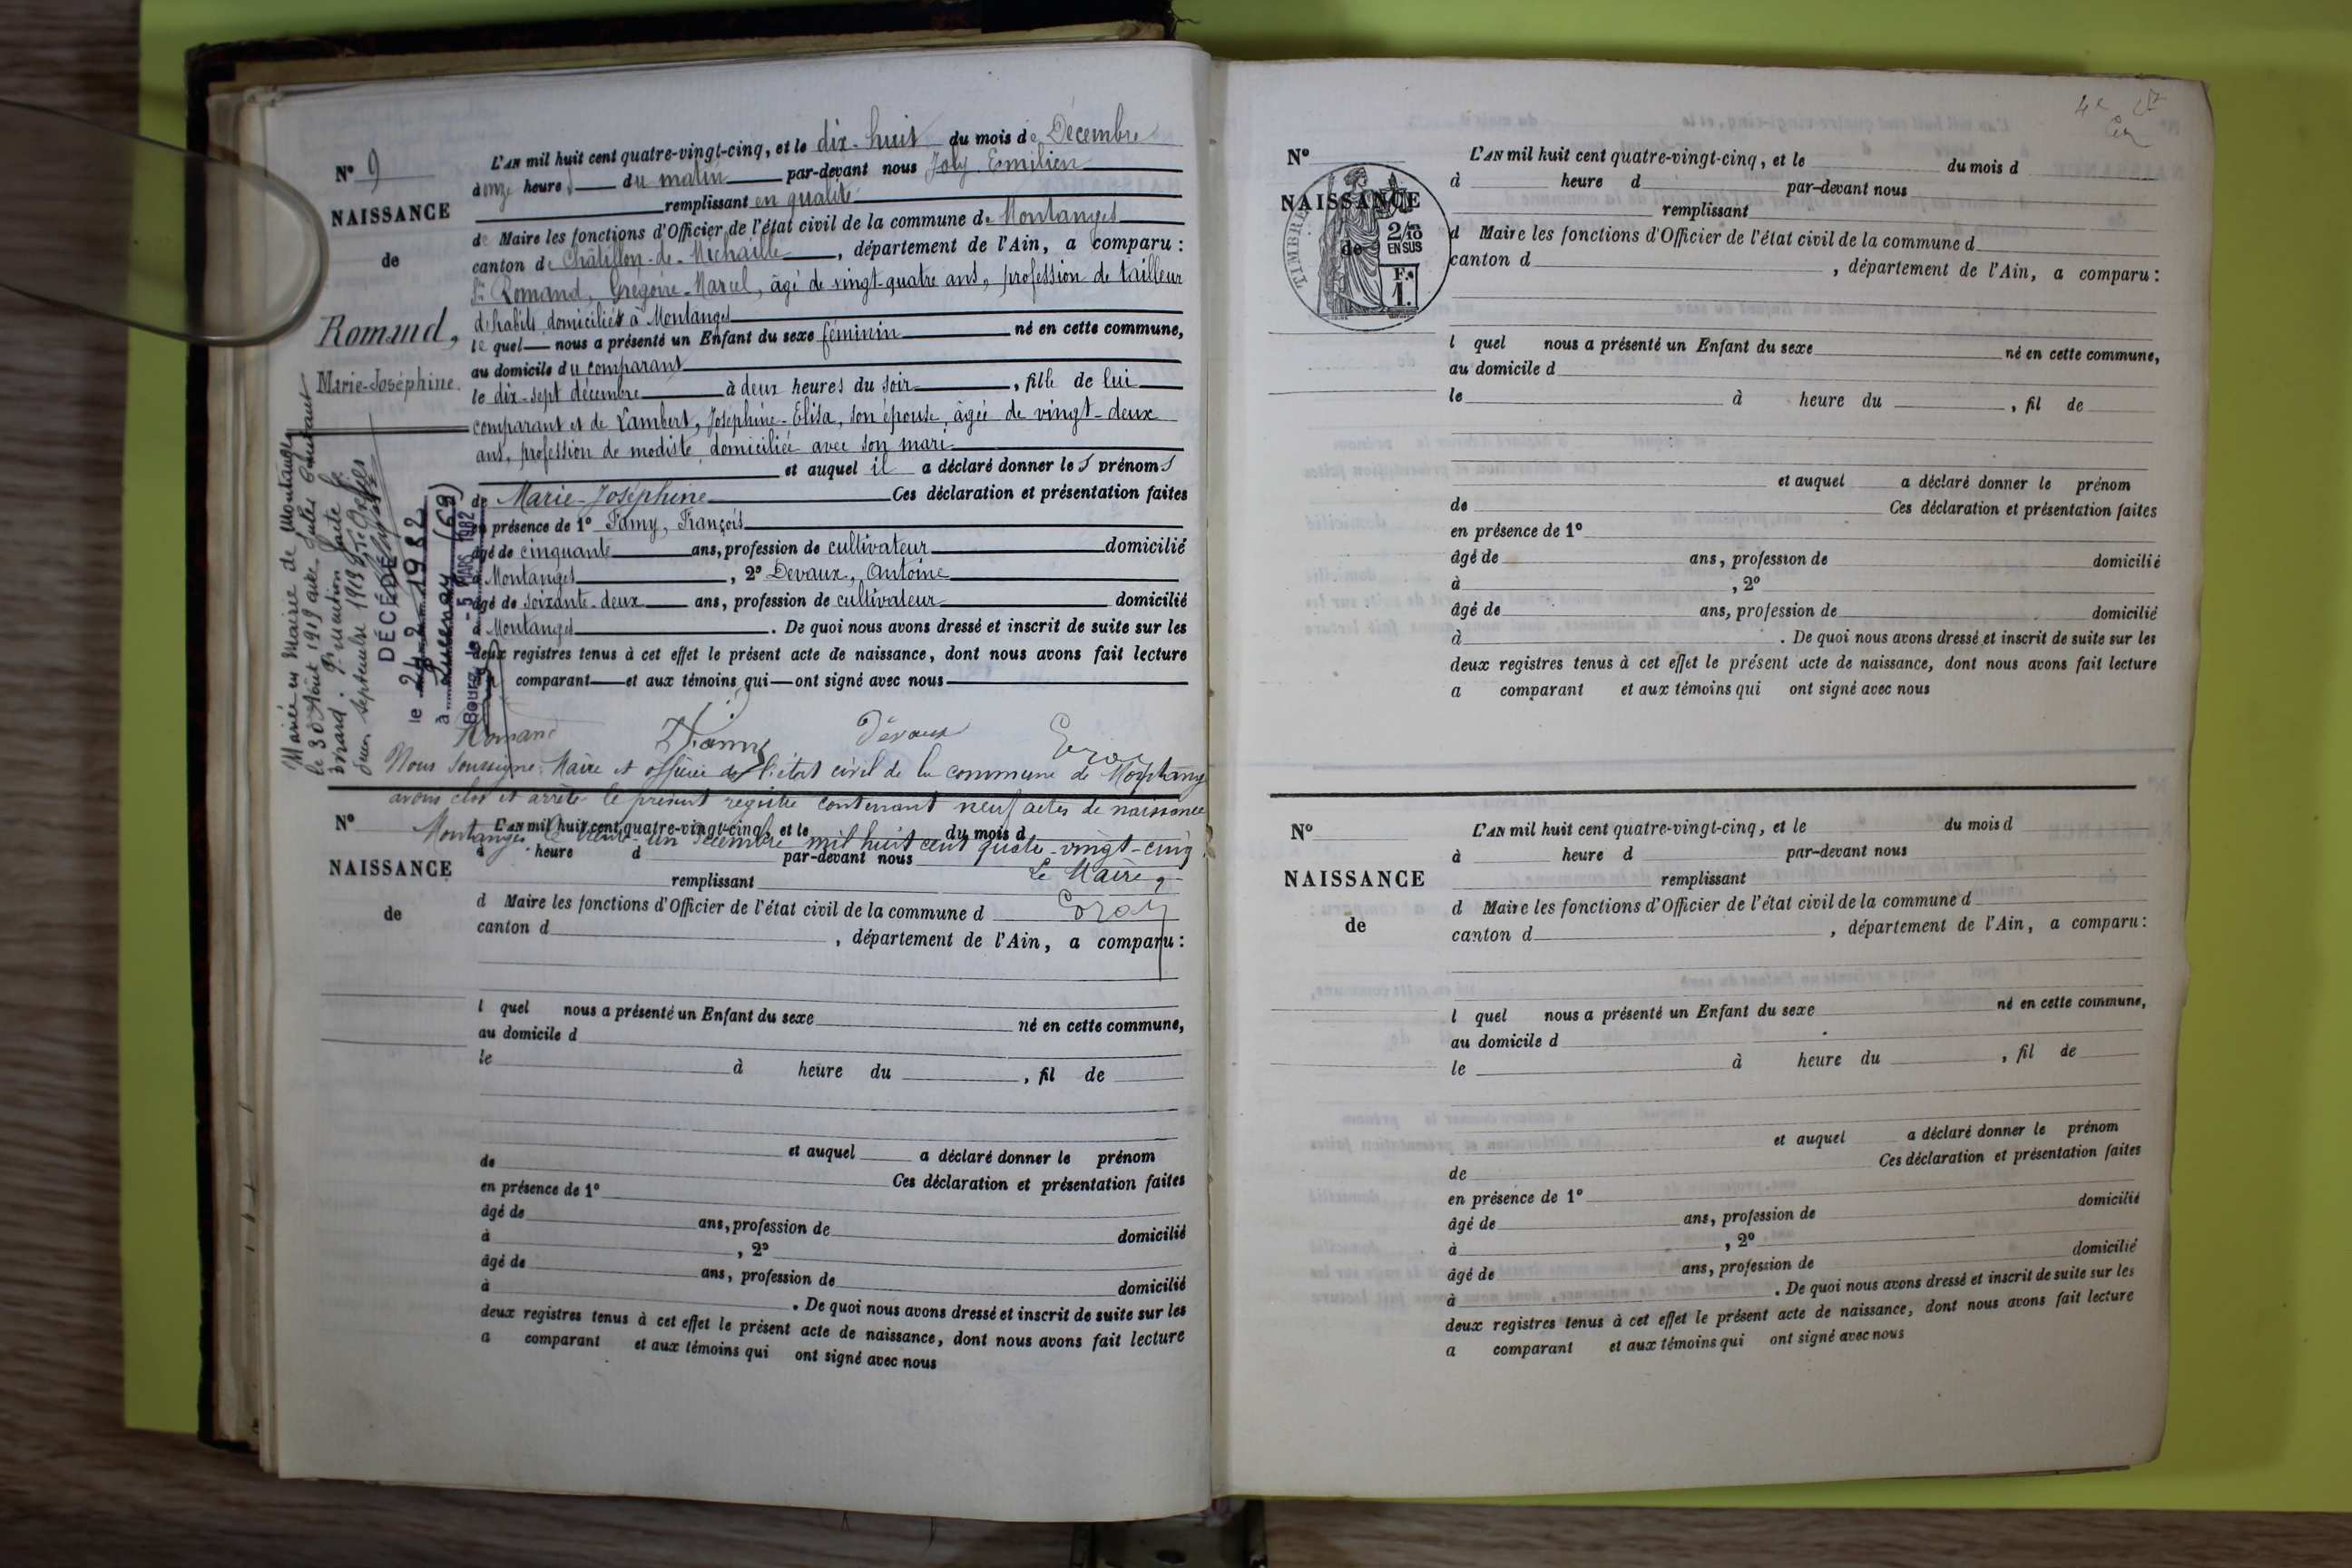 N° 9
NAISSANCE
de
Romand,
Marie-Joséphine.
L'AN mil huit cent quatre-vingt-cinq, et le dix-huit du mois de Décembre
à onze heures du matin par-devant nous Joly Emilien
remplissant en qualité
de Maire les fonctions d'Officier de l'état civil de la commune de Montanges
canton de Châtillon-de-Michaille, département de l'Ain, a comparu :
Sr Romand, Grégoire-Marcel, âgé de vingt-quatre ans, profession de tailleur
d'habits domicilié à Montanges
lequel nous a présenté un Enfant du sexe féminin né en cette commune,
au domicile du comparant
le dix-sept décembre à deux heures du soir, fille de lui
comparant et de Lambert, Joséphine-Elisa, son épouse, âgée de vingt-deux
ans, profession de modiste domiciliée avec son mari
et auquel il a déclaré donner les prénoms
de Marie-Joséphine Ces déclaration et présentation faites
en présence de 1° Famy, François
âgé de cinquante ans, profession de cultivateur domicilié
à Montanges, 2° Devaux, Antoine
âgé de soixante-deux ans, profession de cultivateur domicilié
à Montanges. De quoi nous avons dressé et inscrit de suite sur les
deux registres tenus à cet effet le présent acte de naissance, dont nous avons fait lecture
comparant et aux témoins qui ont signé avec nous
Romand Famy Devaux
Mariée en Mairie de Montanges
le 30 Août 1919 avec Jules
Mention faite le
deux septembre 1919
DÉCÉDÉE
le 24-2-1982
à (69)
Bourg, le -5 MARS 1982
Nous soussigné Maire et officier de l'état civil de la commune de Montanges
avons clos et arrêté le présent registre contenant neuf actes de naissance
Montanges le trente-un décembre mil huit cent quatre-vingt-cinq.
Le Maire,
N°
NAISSANCE
de
L'AN mil huit cent quatre-vingt-cinq, et le du mois d
à heure d par-devant nous
remplissant
d Maire les fonctions d'Officier de l'état civil de la commune d
canton d , département de l'Ain, a comparu :
l quel nous a présenté un Enfant du sexe né en cette commune,
au domicile d
le à heure du , fil de
et auquel a déclaré donner le prénom
de Ces déclaration et présentation faites
en présence de 1°
âgé de ans, profession de domicilié
à , 2°
âgé de ans, profession de domicilié
à . De quoi nous avons dressé et inscrit de suite sur les
deux registres tenus à cet effet le présent acte de naissance, dont nous avons fait lecture
a comparant et aux témoins qui ont signé avec nous
N°
NAISSANCE
de
TIMBRE
2/10
EN SUS
F.c
1.
L'AN mil huit cent quatre-vingt-cinq, et le du mois d
à heure d par-devant nous
remplissant
d Maire les fonctions d'Officier de l'état civil de la commune d
canton d , département de l'Ain, a comparu :
l quel nous a présenté un Enfant du sexe né en cette commune,
au domicile d
le à heure du , fil de
et auquel a déclaré donner le prénom
de Ces déclaration et présentation faites
en présence de 1°
âgé de ans, profession de domicilié
à , 2°
âgé de ans, profession de domicilié
à . De quoi nous avons dressé et inscrit de suite sur les
deux registres tenus à cet effet le présent acte de naissance, dont nous avons fait lecture
a comparant et aux témoins qui ont signé avec nous
N°
NAISSANCE
de
L'AN mil huit cent quatre-vingt-cinq, et le du mois d
à heure d par-devant nous
remplissant
d Maire les fonctions d'Officier de l'état civil de la commune d
canton d , département de l'Ain, a comparu :
l quel nous a présenté un Enfant du sexe né en cette commune,
au domicile d
le à heure du , fil de
et auquel a déclaré donner le prénom
de Ces déclaration et présentation faites
en présence de 1°
âgé de ans, profession de domicilié
à , 2°
âgé de ans, profession de domicilié
à . De quoi nous avons dressé et inscrit de suite sur les
deux registres tenus à cet effet le présent acte de naissance, dont nous avons fait lecture
a comparant et aux témoins qui ont signé avec nous